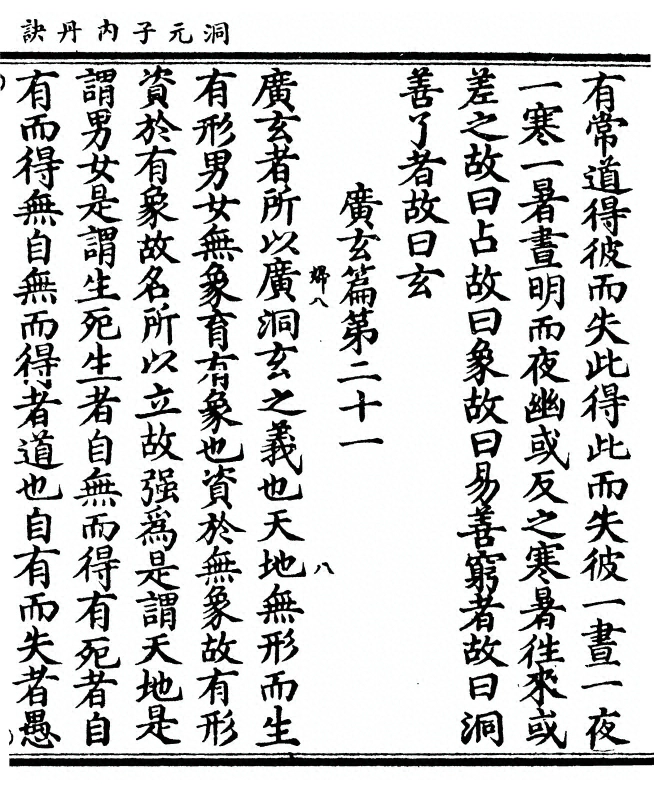 洞元子內丹訣
有常道得彼而失此得此而失彼一晝一夜
一寒一暑晝明而夜幽或反之寒暑往來或
差之故曰占故曰象故曰易善窮者故曰洞
善了者故曰玄
廣玄篇第二十一
婦八
八
廣玄者所以廣洞玄之義也天地無形而生
有形男女無象育有象也資於無象故有形
資於有象故名所以立故强爲是謂天地是
謂男女是謂生死生者自無而得有死者自
有而得無自無而得者道也自有而失者愚